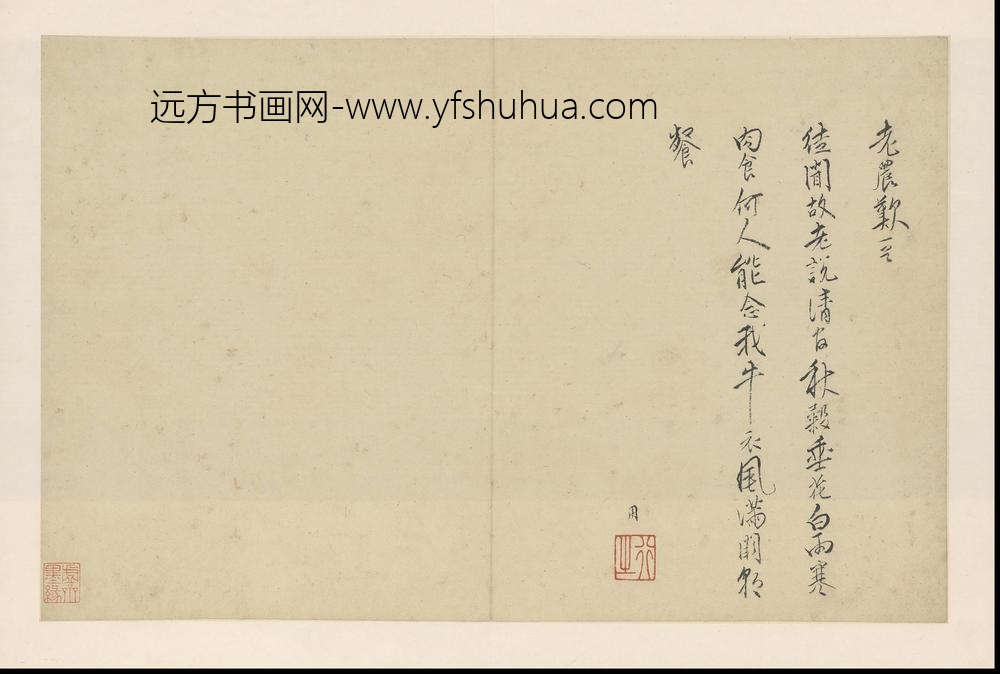 远方书画网-www.yfshuhua.com
老農歎一首
徒聞故老說清官秋穀垂花白雨寒
肉食何人能念我牛衣風滿闕朝
餐
用
行之